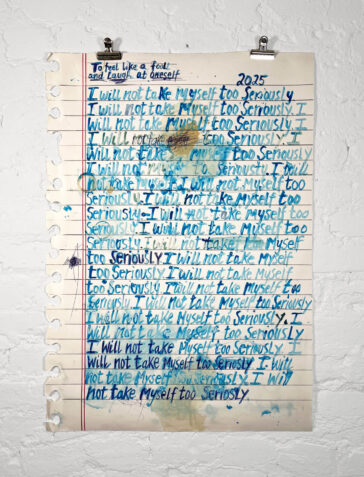 To feel like a fool
and Laugh at oneself
2025
I will not take Myself too Seriously
I will not take Myself too Seriously I
Will not take Myself too Seriously I
I will not take too Seriously I
Will not take Myself too Seriously
I will not too Seriously I will
not take I will not Myself too
Seriously I will not take Myself too
Seriously I will not take Myself too
Seriously I will not take Myself too
Seriously I will not take Myself
too Seriously I will not take Myself
too Seriously I will not take Myself
too Seriously I will not take Myself too
Seriously I will not take Myself too Seriously
I will not take Myself too Seriously. I
Will not take Myself too Seriously
I Will not take Myself too Seriously I
Will not take Myself too Seriosly I Will
not take Myself too Seriously. I Will
not take Myself too Seriosly.